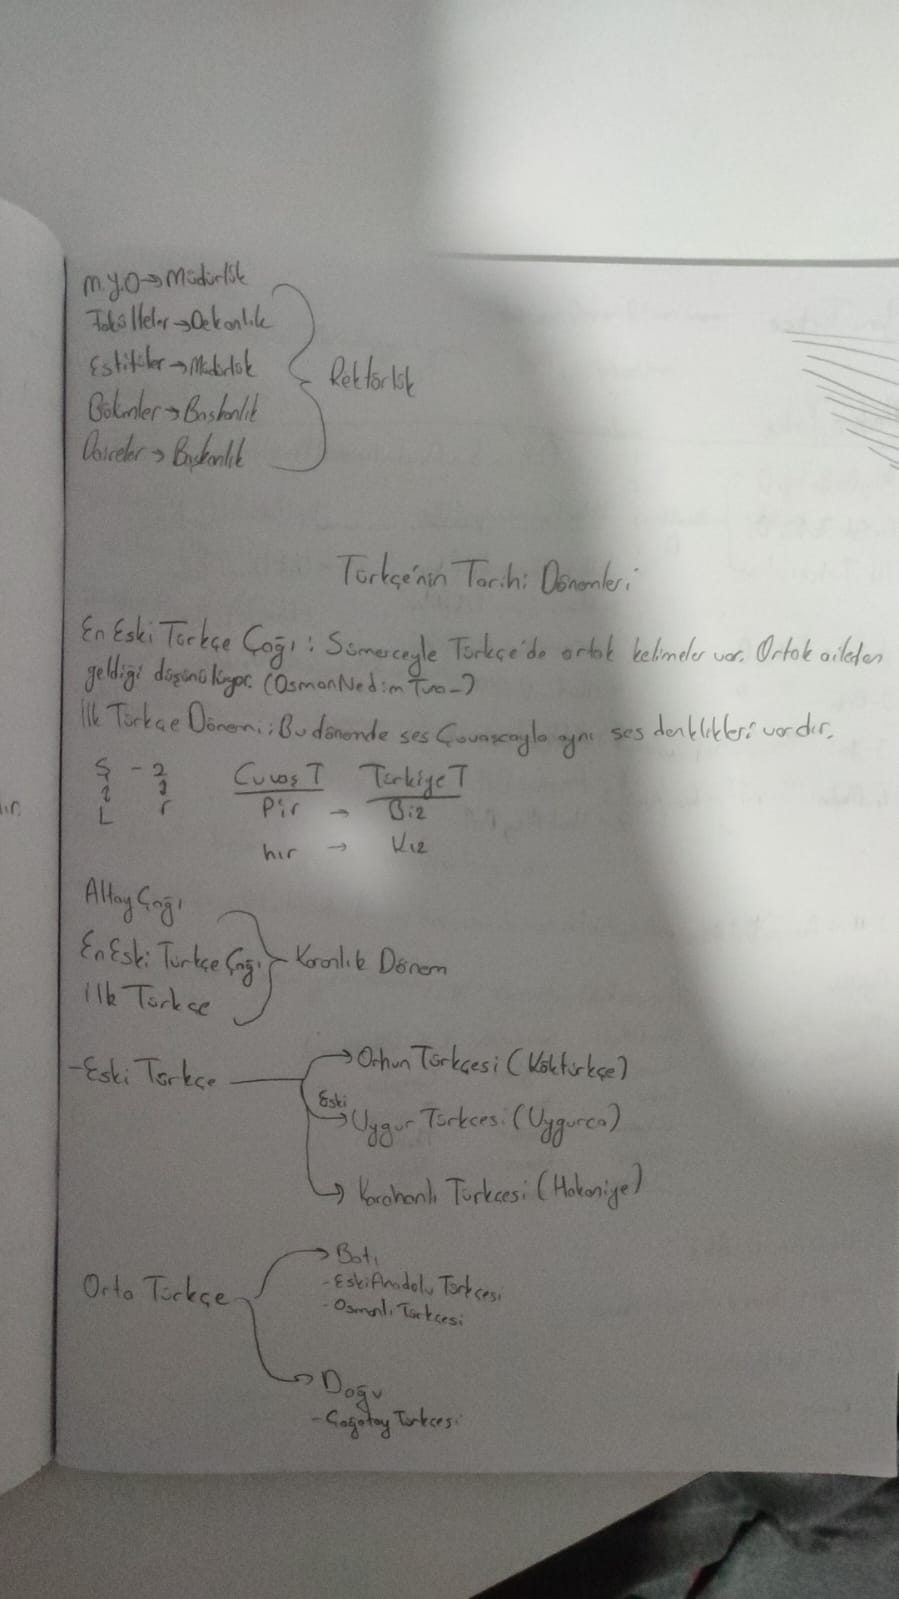 M.Y.O → Müdürlük
Fakülteler → Dekanlık
Estitüler → Müdürlük
Bölümler → Başkanlık
Daireler → Başkanlık
Rektörlük
Türkçe'nin Tarihi Dönemleri
En Eski Türkçe Çağı: Sümerceyle Türkçe'de ortak kelimeler var. Ortak aileden
geldiği düşünülüyor. (Osman Nedim Tuna)
İlk Türkçe Dönemi: Bu dönemde ses Çuvaşçayla aynı ses denklikleri vardır.
Ş - z
L r
Çuvaş T Türkiye T
Pir → Biz
hır → Kız
Altay Çağı
En Eski Türkçe Çağı
İlk Türkçe
Karanlık Dönem
- Eski Türkçe
→ Orhun Türkçesi (Köktürkçe)
→ Eski Uygur Türkçesi (Uygurca)
→ Karahanlı Türkçesi (Hakaniye)
Orta Türkçe
→ Batı
- Eski Anadolu Türkçesi
- Osmanlı Türkçesi
→ Doğu
- Çağatay Türkçesi